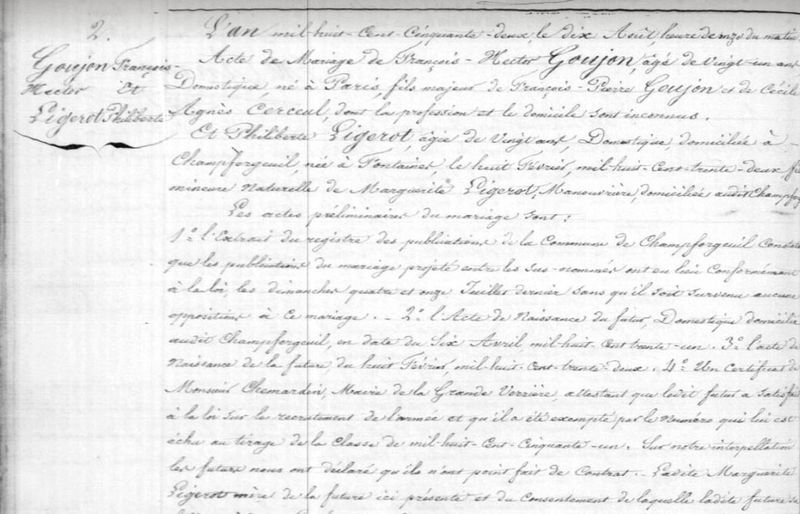 2.
Goujon François-
Hector Et
Ligerot Philberte
L'an mil-huit-Cent-Cinquante-deux, le dix Août, heure de onze du matin
Acte de Mariage de François-Hector Goujon, âgé de Vingt-un ans
Domestique né à Paris, fils majeur de François-Pierre Goujon et de Cécile
Agnès Cerceul, dont la profession et le domicile sont inconnus.
Et Philberte Ligerot, âgée de Vingt ans, Domestique, domiciliée à
Champforgeuil, née à Fontaines, le huit Février, mil-huit-Cent-trente-deux, fille
mineure Naturelle de Marguerite Ligerot, Manouvrière, domiciliée audit Champforg
Les actes préliminaires du mariage sont :
1º l'Extrait du registre des publications de la Commune de Champforgeuil Constate
que les publications du mariage projeté entre les sus-nommés ont eu lieu Conformément
à la loi, les dimanches quatre et onze Juillet dernier sans qu'il soit survenu aucune
opposition à ce mariage. - 2º l'Acte de Naissance du futur Domestique domicilié
audit Champforgeuil, en date du Six Avril, mil-huit-Cent trente-un. 3º l'acte de
Naissance de la future, du huit Février, mil-huit-Cent-trente-deux. 4º Un Certificat de
Monsieur Chemardin, Maire de la Grande Verrière, attestant que ledit futur a Satisfait
à la loi sur le recrutement de l'armée et qu'il a été exempté par le Numéro qui lui est
échu au tirage de la classe de mil-huit-Cent-Cinquante-un. Sur notre interpellation
les futurs nous ont déclaré qu'ils n'ont point fait de Contrat. Ladite Marguerite
Ligerot mère de la future ici présente et du Consentement de laquelle ladite future se